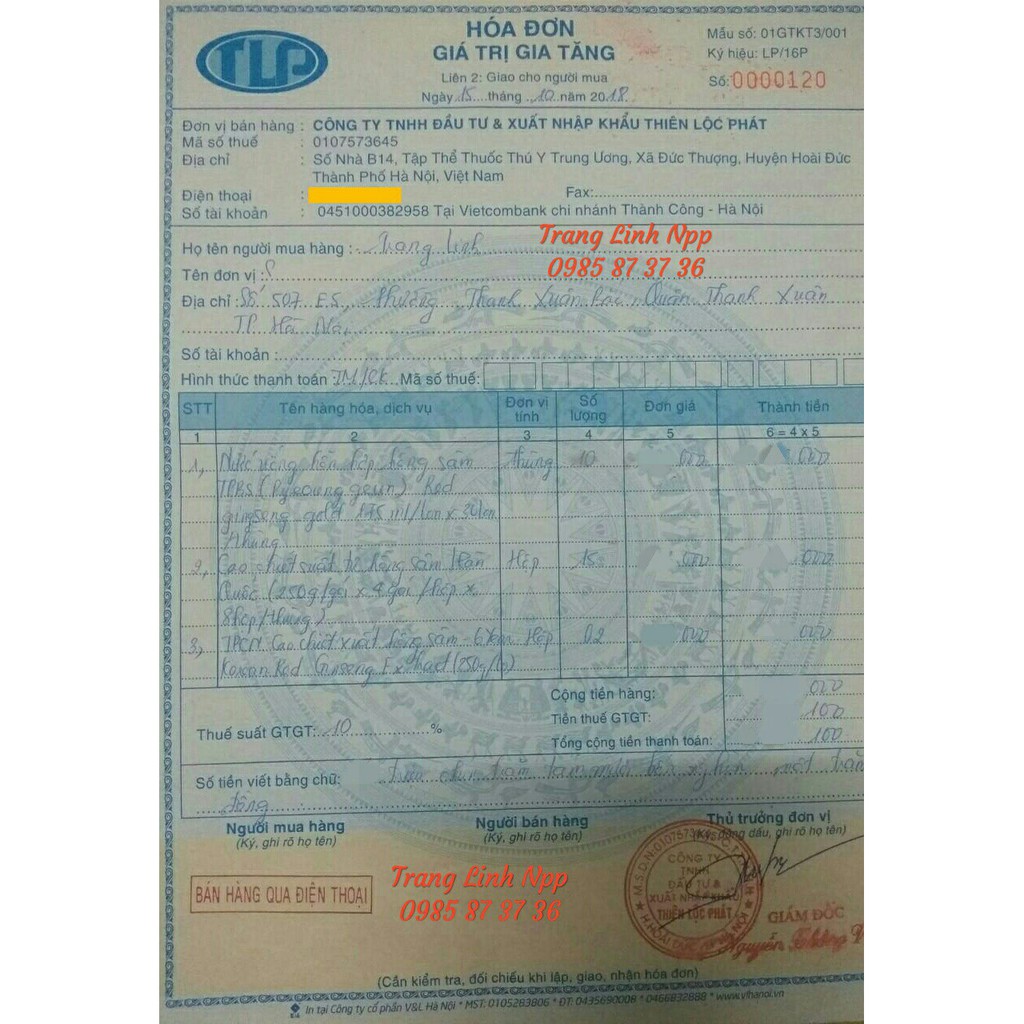 TLP
HÓA ĐƠN
GIÁ TRỊ GIA TĂNG
Liên 2: Giao cho người mua
Ngày 15 tháng 10 năm 2018
Mẫu số: 01GTKT3/001
Ký hiệu: LP/16P
Số: 0000120
Đơn vị bán hàng : CÔNG TY TNHH ĐẦU TƯ & XUẤT NHẬP KHẨU THIÊN LỘC PHÁT
Mã số thuế : 0107573645
Địa chỉ : Số Nhà B14, Tập Thể Thuốc Thú Y Trung Ương, Xã Đức Thượng, Huyện Hoài Đức
Thành Phố Hà Nội, Việt Nam
Điện thoại : Fax:
Số tài khoản : 0451000382958 Tại Vietcombank chi nhánh Thành Công - Hà Nội
Trang Linh Npp
0985 87 37 36
Họ tên người mua hàng : Trang Linh
Tên đơn vị :
Địa chỉ : Số 507 E5, Phường Thanh Xuân Bắc, Quận Thanh Xuân
TP. Hà Nội
Số tài khoản :
Hình thức thanh toán : TM/CK Mã số thuế:
STT Tên hàng hóa, dịch vụ Đơn vị tính Số lượng Đơn giá Thành tiền
1 2 3 4 5 6 = 4 x 5
1, Nước uống hồng sâm thùng 10 000 000
TPBS (Pyeoung geun) Red
ginseng gold 175 ml/lon x 30 lon
/thùng
2, Cao chiết suất từ hồng sâm Hàn Hộp 15 000 000
Quốc (250g/gói x 4 gói /hộp x
8 hộp/thùng)
3, TPCN Cao chiết xuất hồng sâm Hộp 02 000 000
Korean Red Ginseng Extract (250g/lọ)
Cộng tiền hàng: 000
Thuế suất GTGT: 10 % Tiền thuế GTGT: 100
Tổng cộng tiền thanh toán: 100
Số tiền viết bằng chữ: trăm tám mươi nghìn một trăm
đồng
Người mua hàng Người bán hàng Thủ trưởng đơn vị
(Ký, ghi rõ họ tên) (Ký, ghi rõ họ tên) (Ký, đóng dấu, ghi rõ họ tên)
BÁN HÀNG QUA ĐIỆN THOẠI
Trang Linh Npp
0985 87 37 36
CÔNG TY
TNHH
ĐẦU TƯ &
XUẤT NHẬP KHẨU
THIÊN LỘC PHÁT
GIÁM ĐỐC
Nguyễn
(Cần kiểm tra, đối chiếu khi lập, giao, nhận hóa đơn)
In tại Công ty cổ phần V&L Hà Nội * MST: 0105283806 * ĐT: 0435690008 * 0466832888 * www.vlhanoi.vn